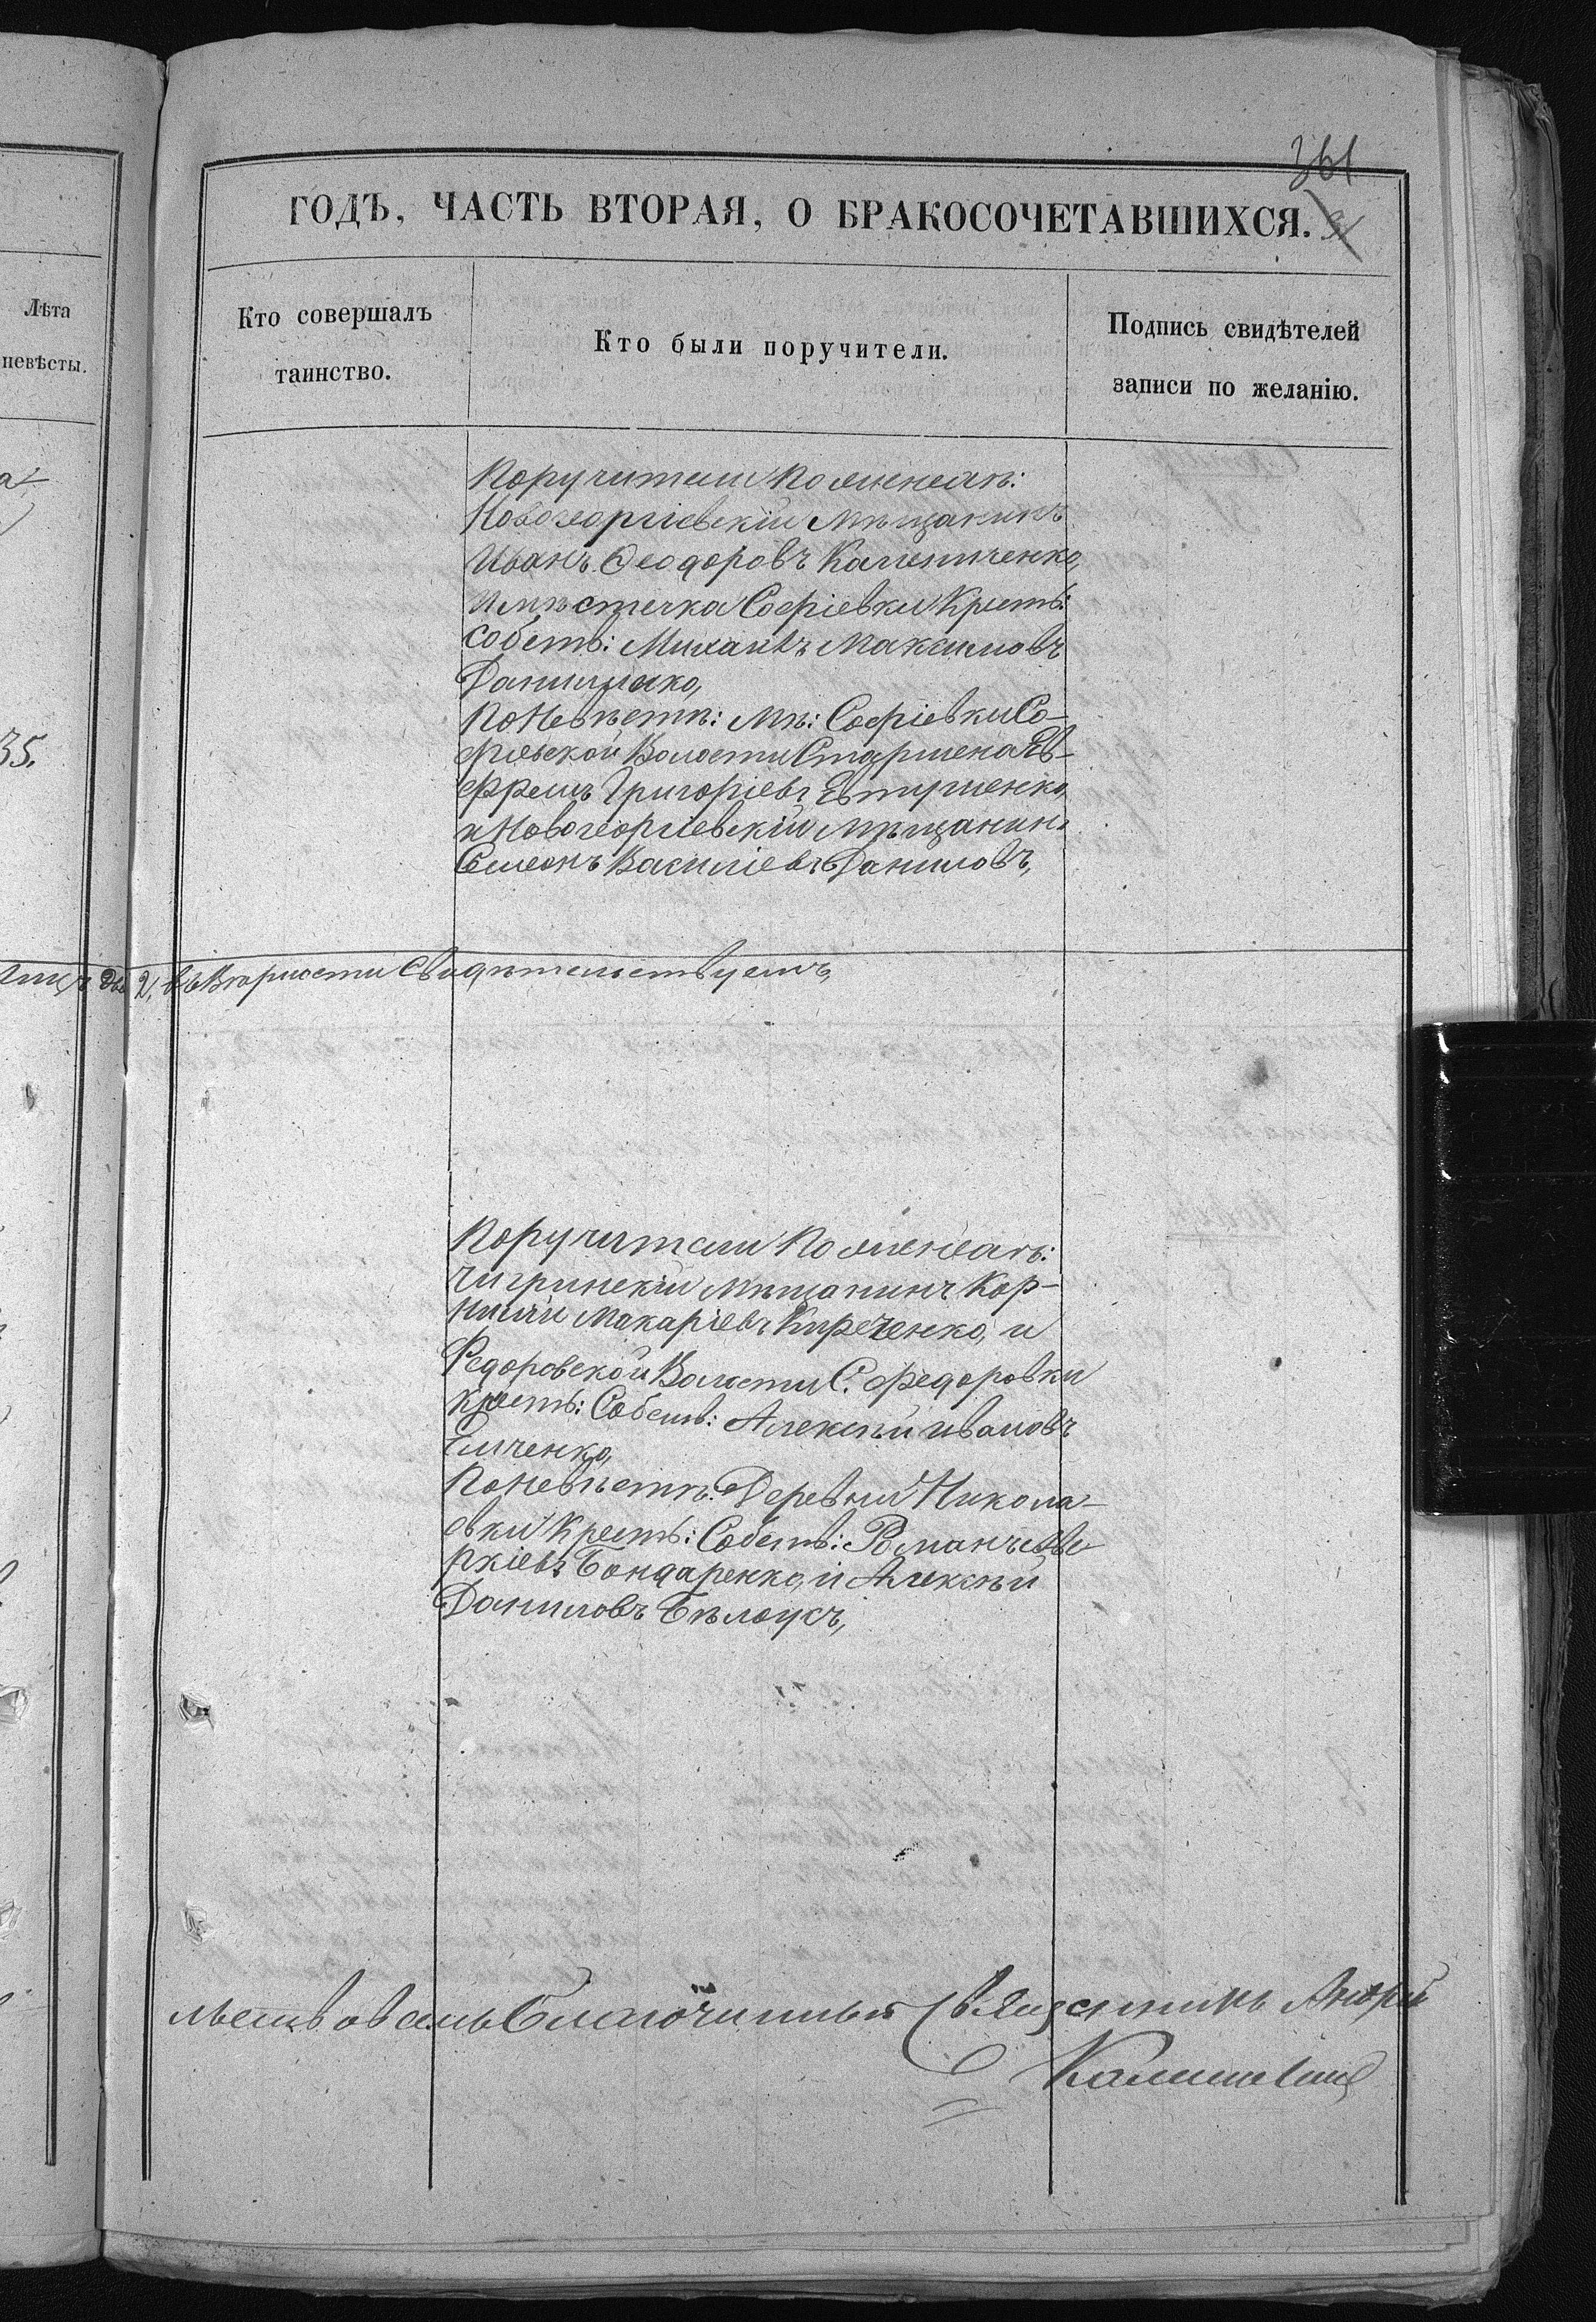 361
ГОДЪ, ЧАСТЬ ВТОРАЯ, О БРАКОСОЧЕТАВШИХСЯ.
Лѣта
невѣсты.
Кто совершалъ
таинство.
Кто были поручители.
Подпись свидѣтелей
записи по желанію.
35.
Поручители По женихѣ:
Новогеоргіевскій Мѣщанинъ
Иванъ Ѳеодоровъ
И мѣстечка Софіевки Крест:
собств: Михаилъ Максимовъ
Данильченко,
По Невѣстѣ: Мѣ: Софіевки Со-
фіевской Волости Старшина Ев-
фремъ Григоріевъ Евтушенко,
и Новогеоргіевскій Мѣщанинъ
Симеонъ Василіевъ Даниловъ,
2, въ Вѣрности Свидѣтельствуемъ,
Поручители По женихѣ:
Чигринскій Мѣщанинъ Кор-
нилій Макаріевъ Киреченко, и
Федоровской Волости С. Федоровки
Крест: Собств: Алексѣй Ивановъ
Емченко,
По Невѣстѣ: Деревни Никола-
евки Крест: Собств: Романъ Аве-
ркіевъ Бондаренко, и Алексѣй
Даниловъ Бѣлоусъ,
льствовалъ Благочинный Священникъ Андрей